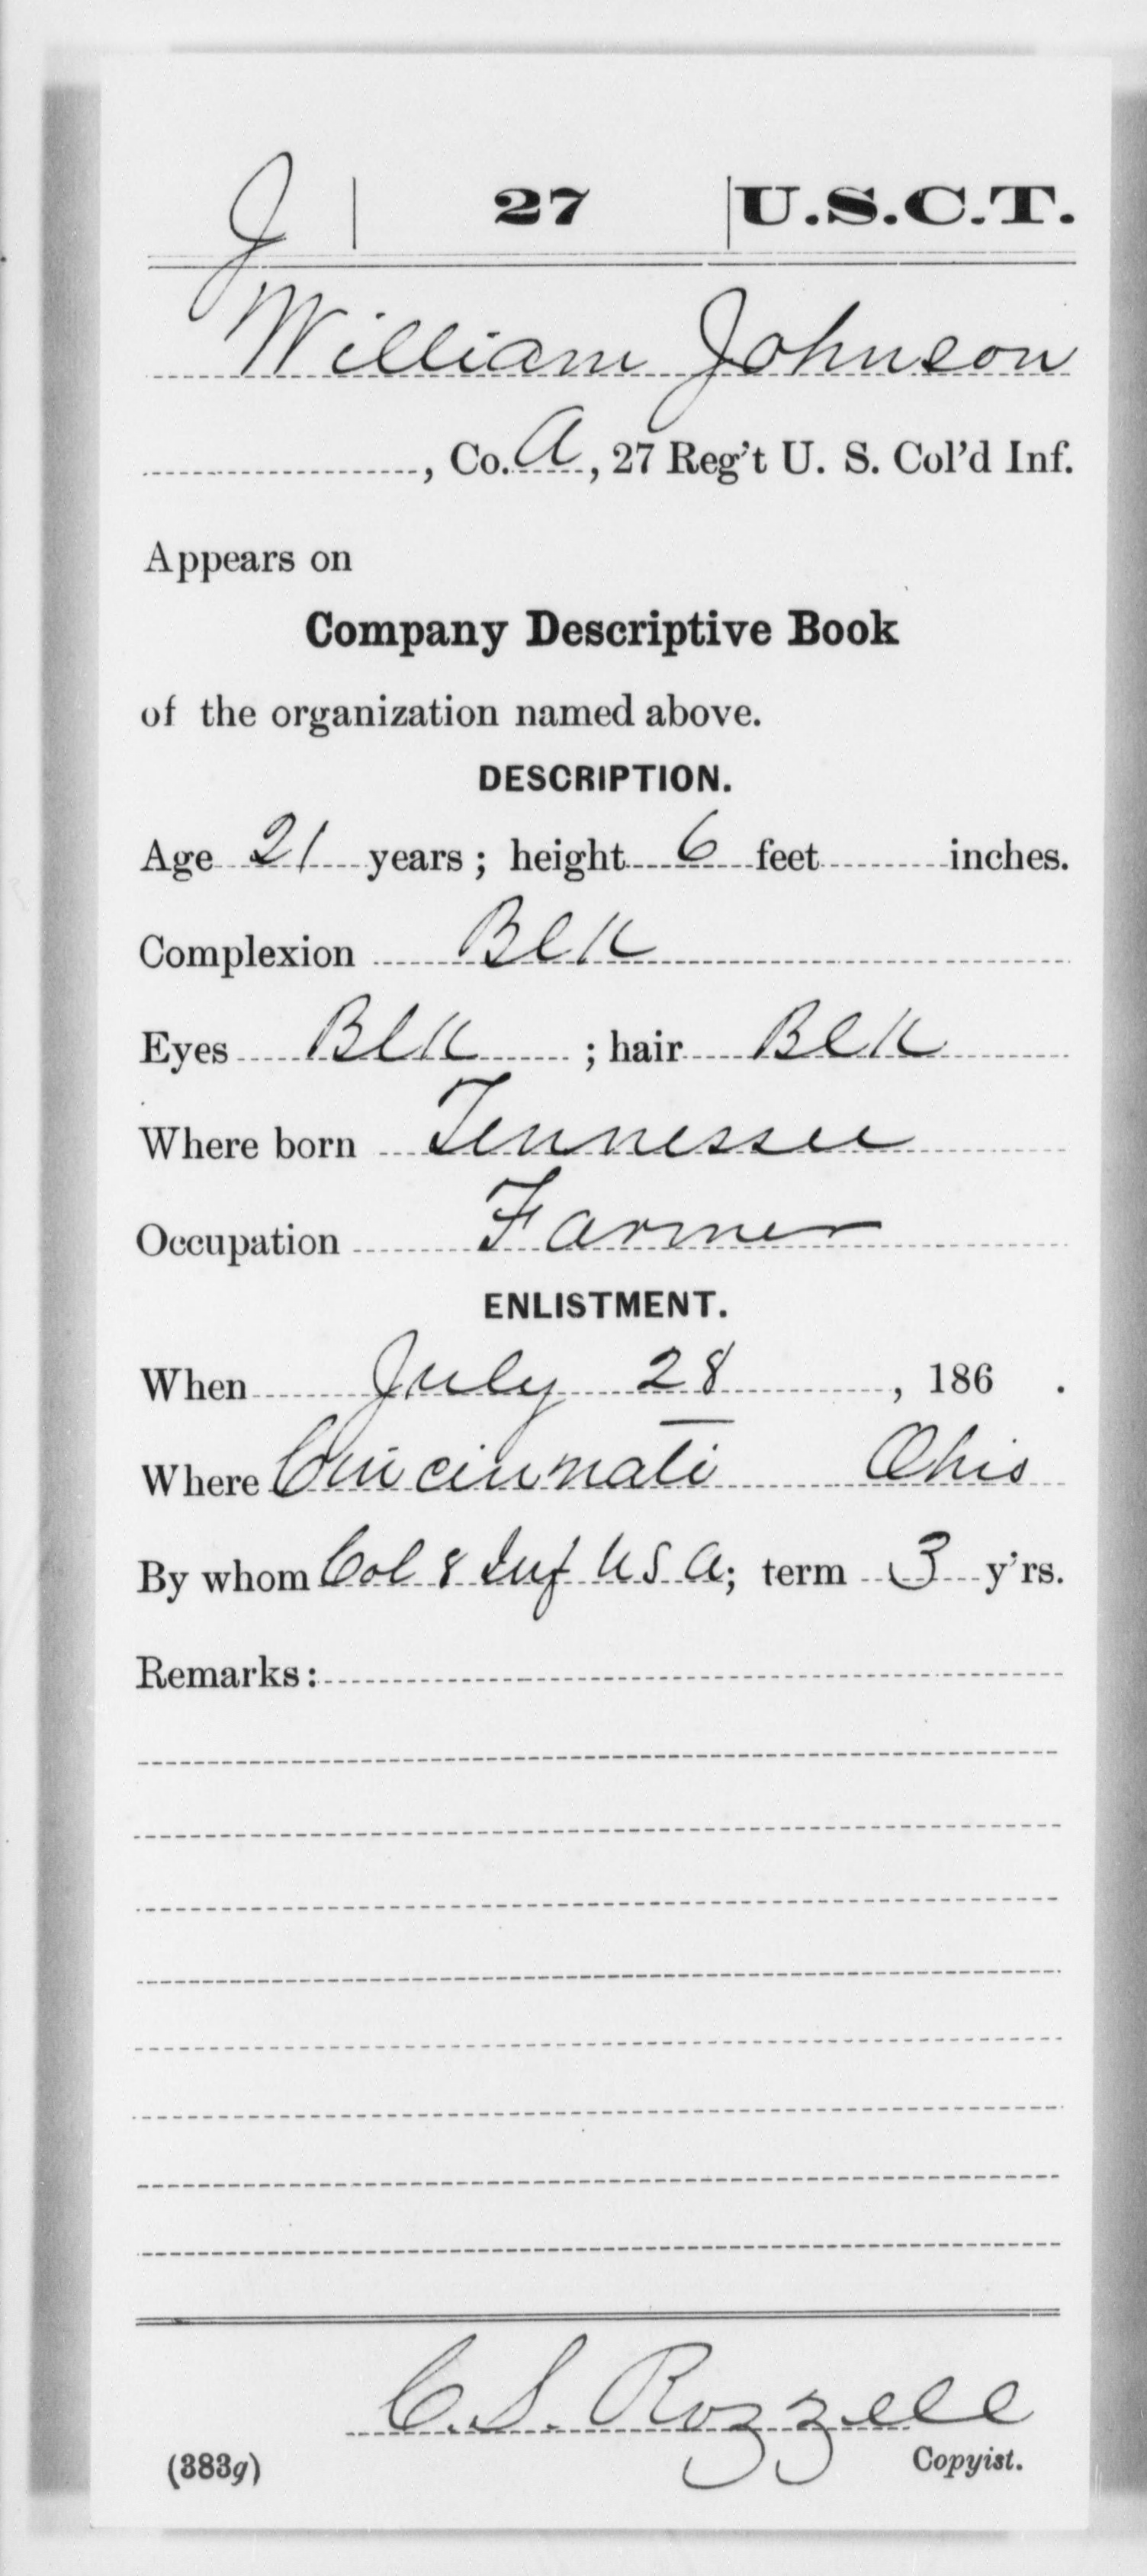 J | 27 | U.S.C.T.
William Johnson
, Co. A, 27 Reg't U. S. Col'd Inf.
Appears on
Company Descriptive Book
of the organization named above.
DESCRIPTION.
Age 21 years; height 6 feet inches.
Complexion Blk
Eyes Blk ; hair Blk
Where born Tennessee
Occupation Farmer
ENLISTMENT.
When July 28, 186 .
Where Cincinnati Ohio
By whom Col 8 Inf U S A; term 3 y'rs.
Remarks:
C. S. Rozzell
(383g) Copyist.